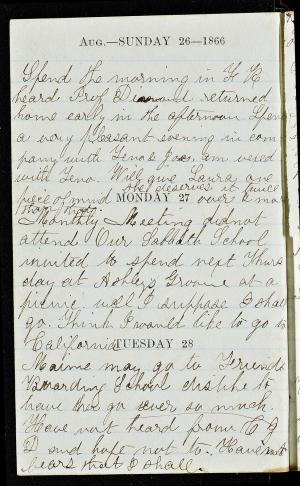 AUG.—SUNDAY 26—1866
Spend the morning in
heard Prof. returned
home early in the afternoon Spend
a very pleasant evening in com-
pany with Teno & Jos. am vexed
with Teno. Will give Laura one
she deserves it twice
piece of mind over a man
MONDAY 27
than that
Monthly Meeting did not
attend Our Sabbath School
invited to spend next Thurs
day at Ashley's Grove at a
picnic. well I suppose I shall
go. Think I would like to go to
California
TUESDAY 28
Maime may go to Friends
Boarding School dislike to
have her go ever so much.
Have not heard from C J
D and hope not to. Have not
fears that I shall.